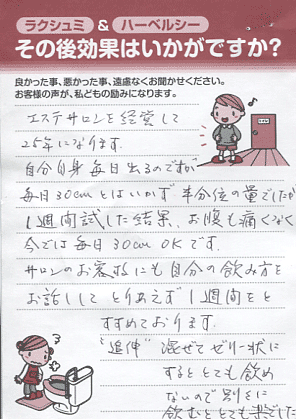 ラクシュミ & ハーベルシー
その後効果はいかがですか?
良かった事、悪かった事、遠慮なくお聞かせください。
お客様の声が、私どもの励みになります。
エステサロンを経営して
25年になります。
自分自身毎日出るのですが
毎日30cmとはいかず 半分位の量でしたが
1週間試した結果、お腹も痛くなく
今では毎日30cm OKです。
サロンのお客様にも自分の飲み方を
お話しして とりあえず1週間をと
すすめております。
"追伸" 混ぜてゼリー状に
するととても飲め
ないので別々に
飲むととても楽でした